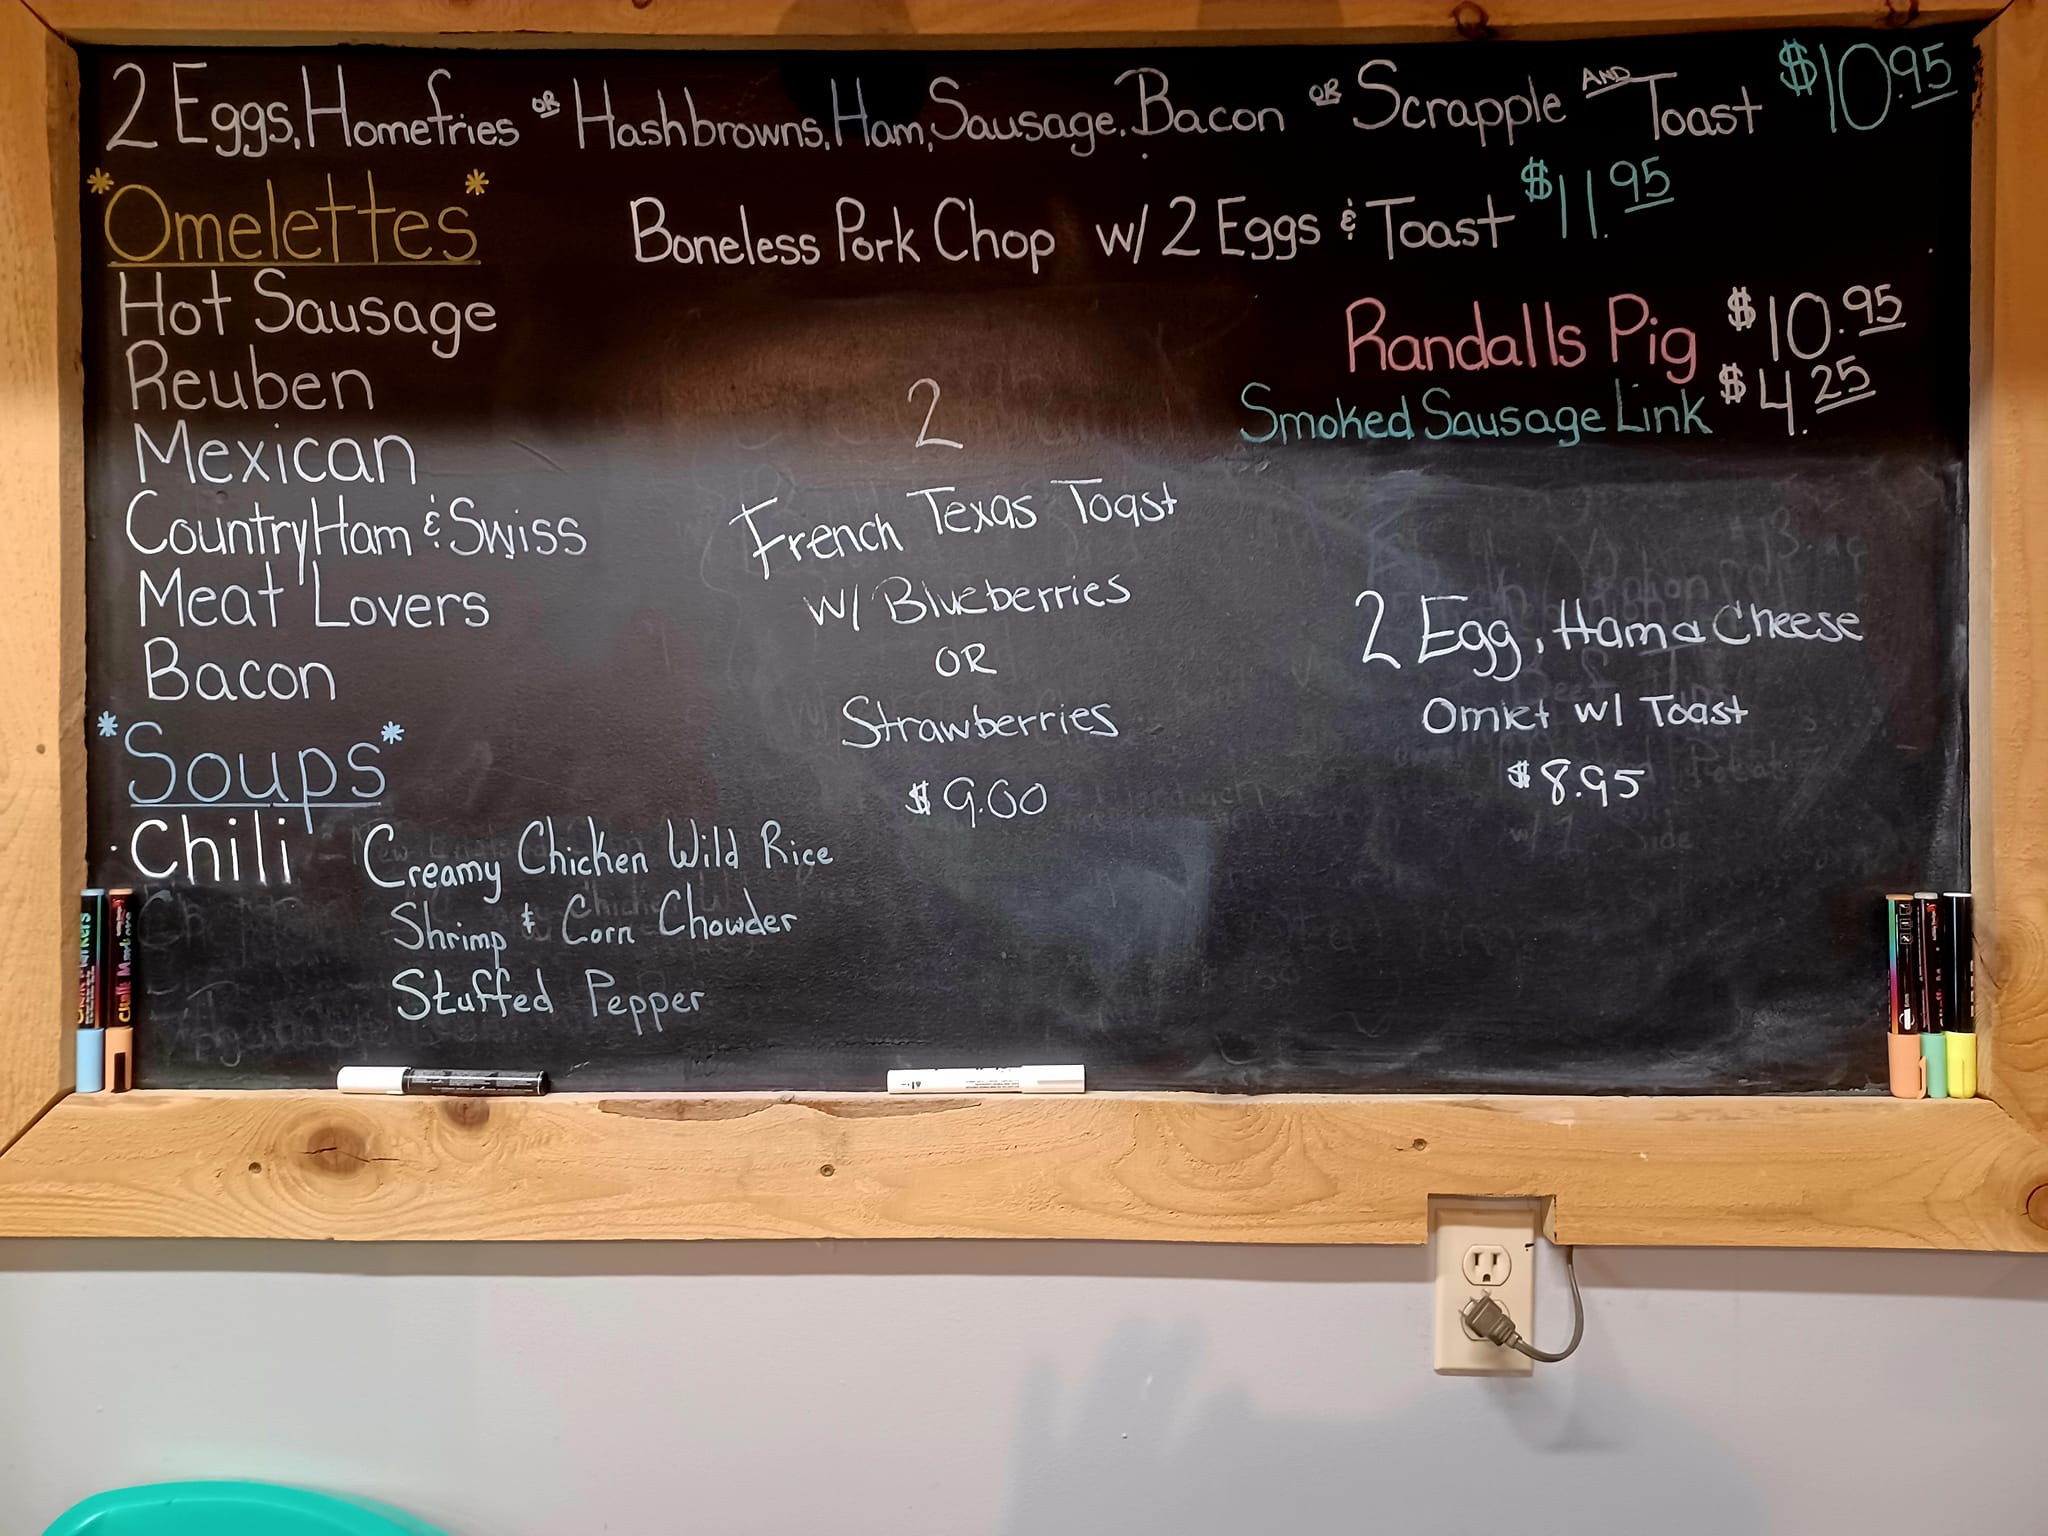 2 Eggs, Homefries OR Hashbrowns, Ham, Sausage, Bacon OR Scrapple AND Toast $10.95
*Omelettes*
Hot Sausage
Reuben
Mexican
Country Ham & Swiss
Meat Lovers
Bacon
*Soups*
Chili
Creamy Chicken Wild Rice
Shrimp & Corn Chowder
Stuffed Pepper
Boneless Pork Chop w/ 2 Eggs & Toast $11.95
Randalls Pig $10.95
Smoked Sausage Link $4.25
2
French Texas Toast
w/ Blueberries
OR
Strawberries
$9.00
2 Egg, Ham & Cheese
Omlet w/ Toast
$8.95